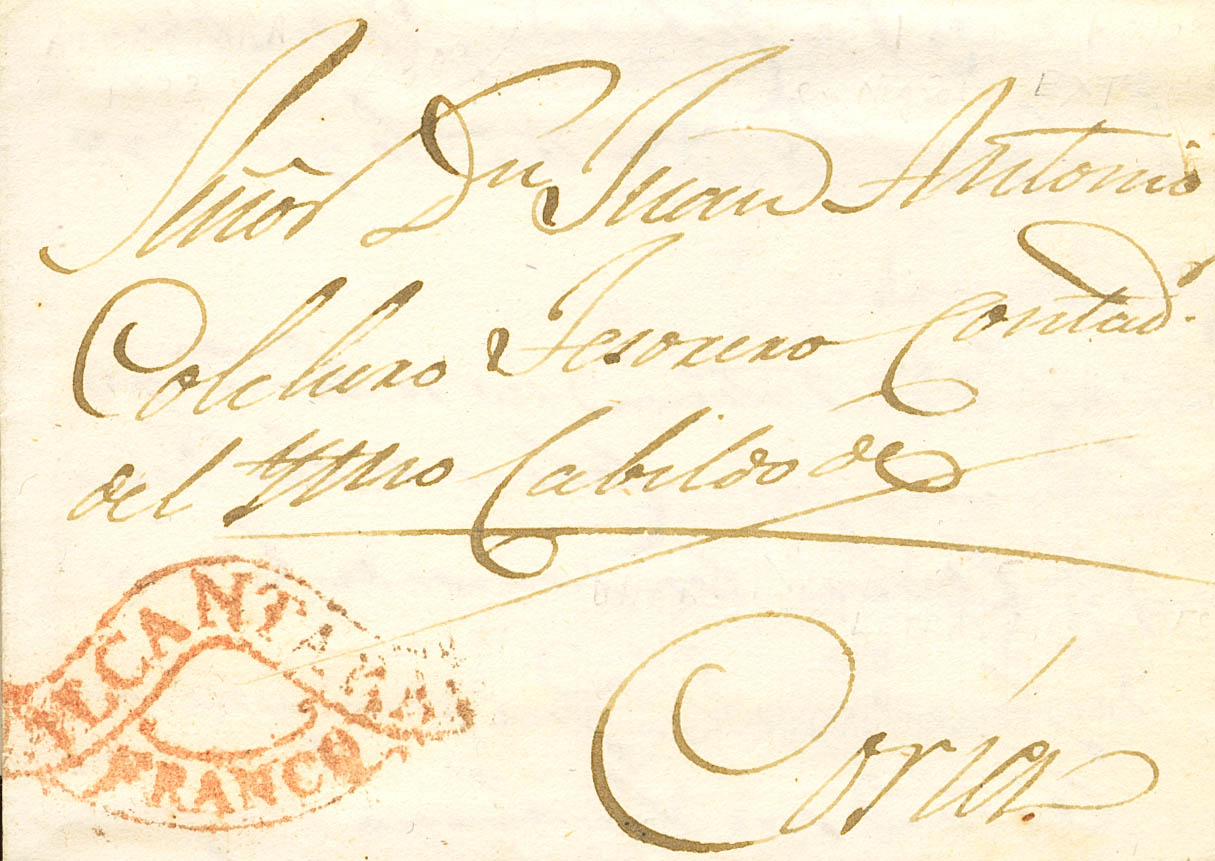 Señor Dn Juan Antonio
Colchero Tesorero Contad.
del Yllmo Cabildo de
Coria.
ALCANTARA
FRANCO